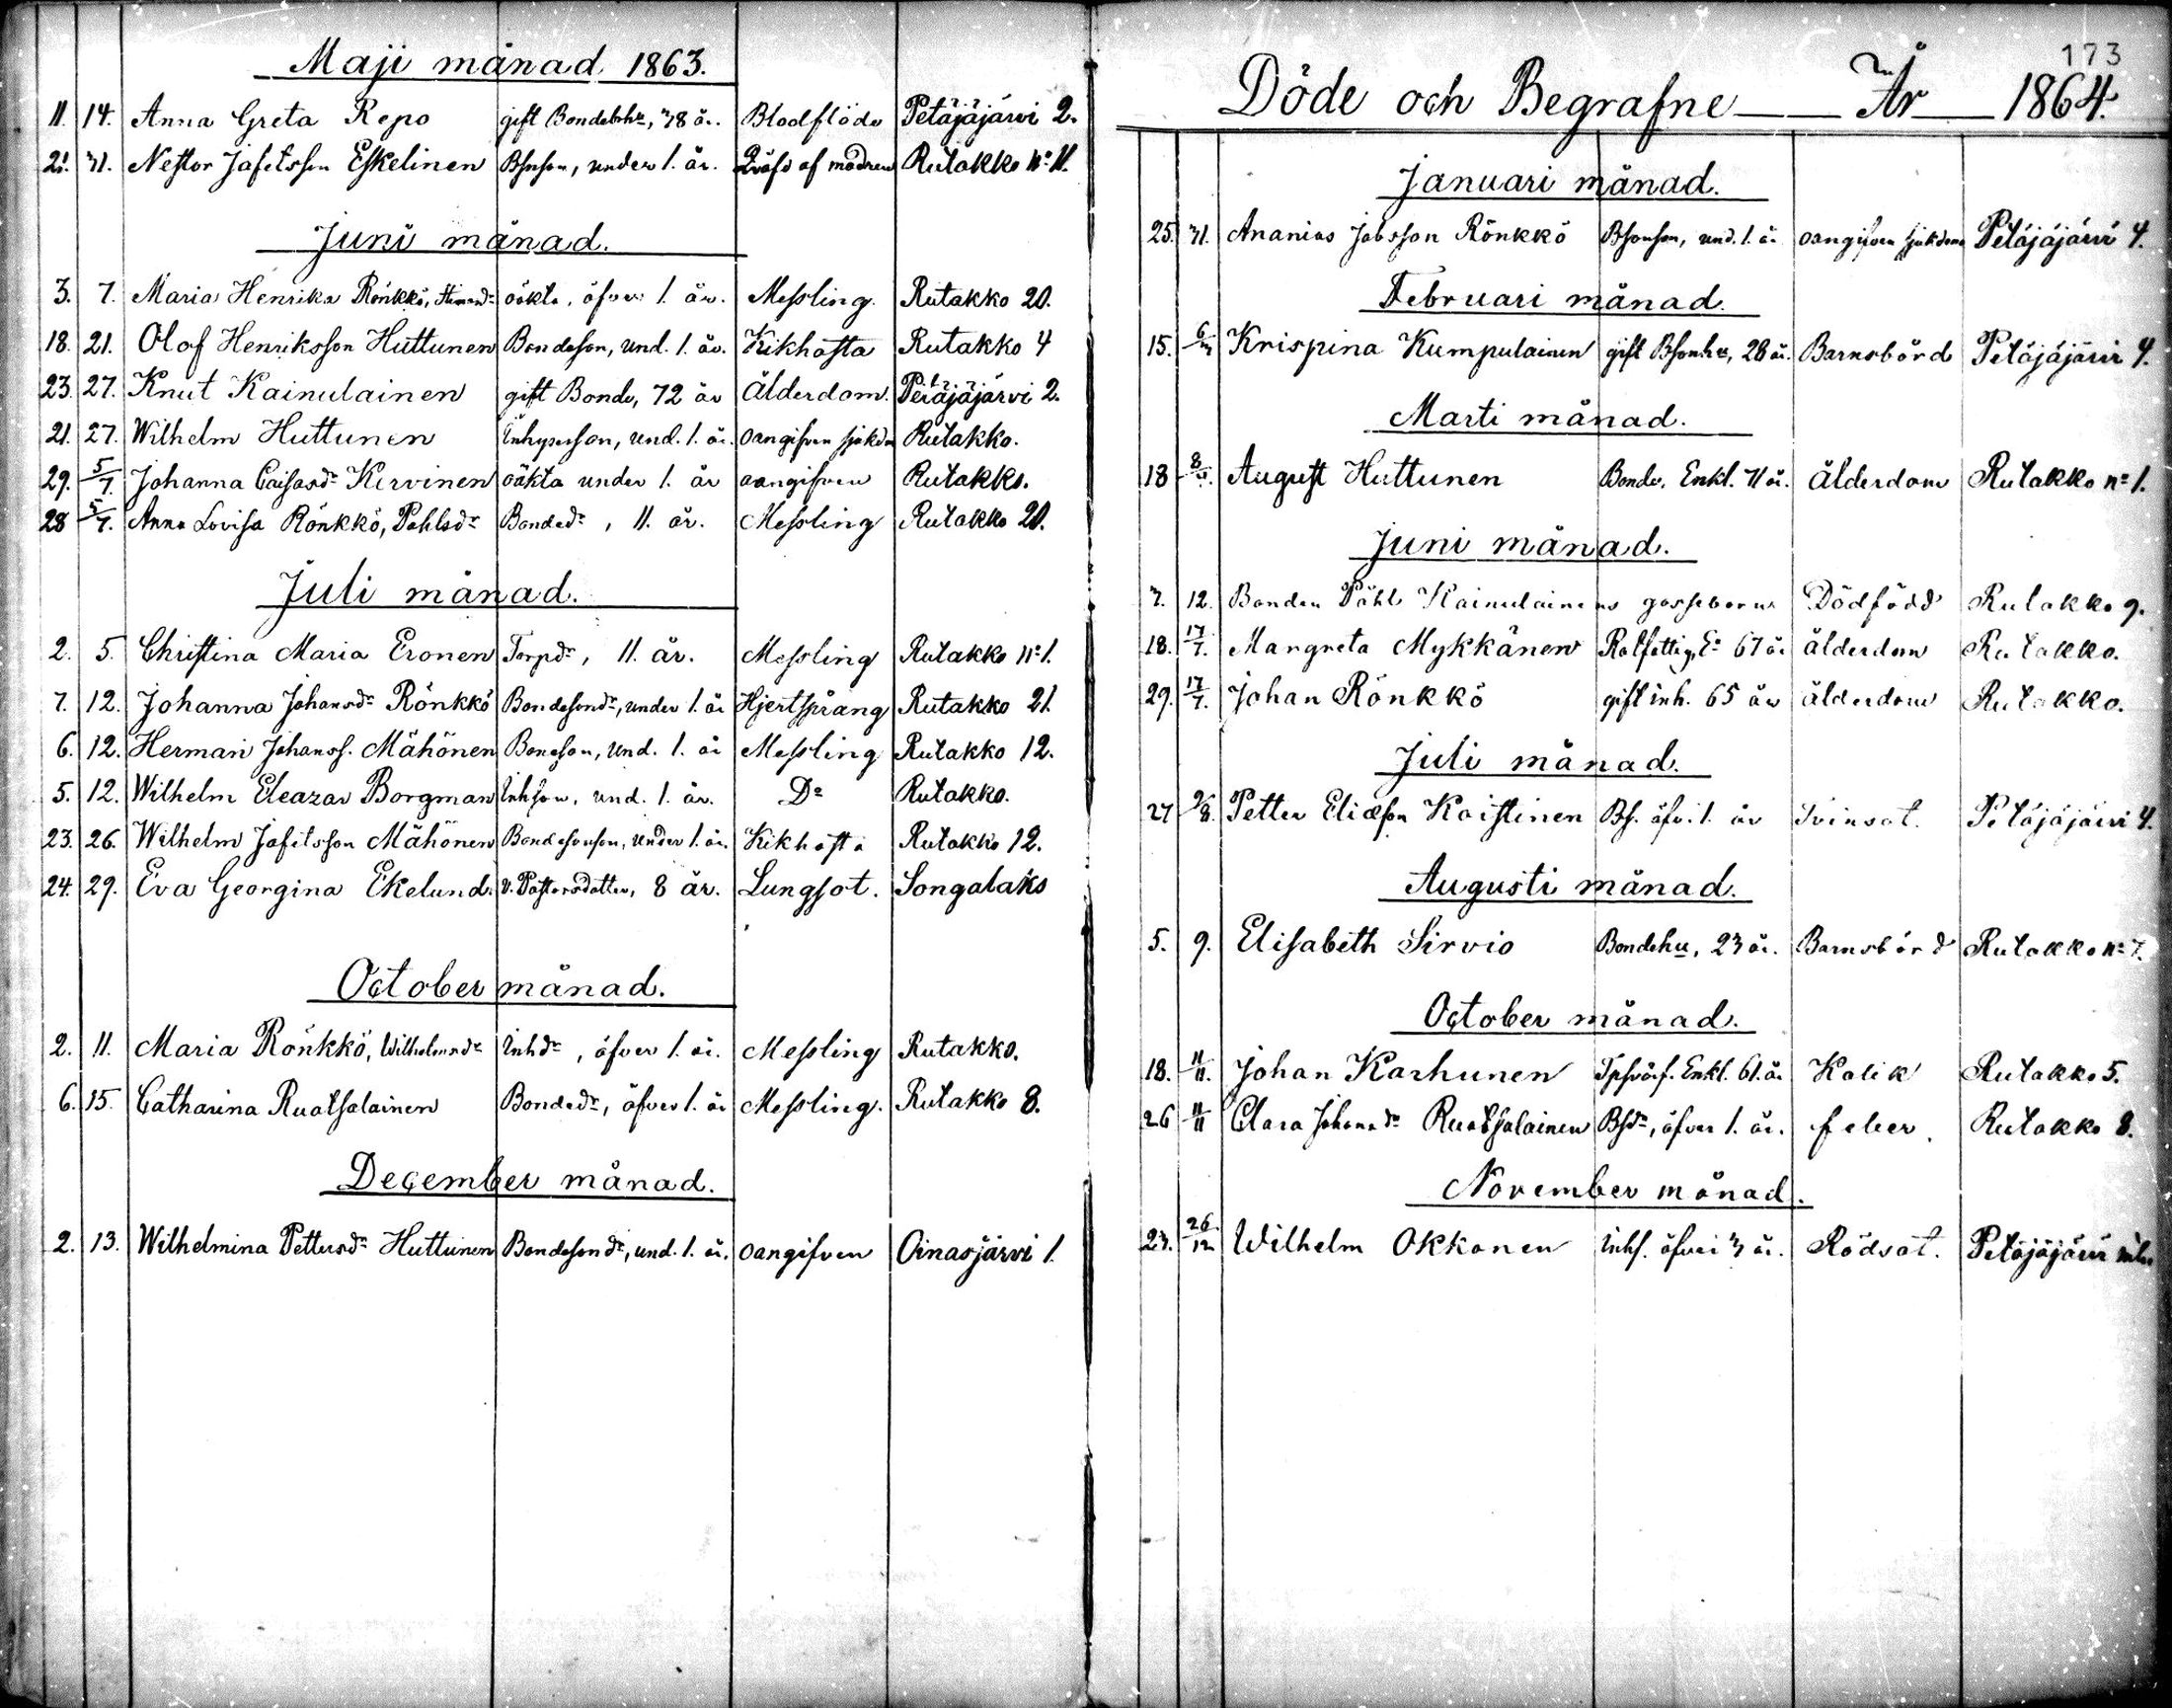 Maji månad 1863.
11. 14. Anna Greta Repo gift Bondehu, 38 år. Blodflöde Petäjäjärvi 2.
21. 31. Nestor Jafetsson Eskelinen Bsonson, under 1. år. Qväfd af modren Rutakko No 11.
Juni månad.
3. 7. Maria Henrika Rönkkö, oäkta, öfver 1. år. Messling. Rutakko 20.
18. 21. Olof Henriksson Huttunen Bondeson, und. 1. år. Kikhosta Rutakko 4
23. 27. Knut Kainulainen gift Bonde, 72 år Ålderdom. Petäjäjärvi 2.
21. 27. Wilhelm Huttunen Inhysesson, und. 1. år. oangifven sjukdm Rutakko.
29. 5/7. Johanna Caisasdr Kervinen oäkta under 1. år oangifven Rutakko.
28 5/7. Anna Lovisa Rönkkö, Påhlsdr Bondedr, 11. år. Messling Rutakko 20.
Juli månad.
2. 5. Christina Maria Eronen Torpdr, 11. år. Messling Rutakko No 1.
7. 12. Johanna Johansdr Rönkkö Bondesondr, under 1. år Hjertsprång Rutakko 21.
6. 12. Herman Johanss. Mähönen Bondson, und. 1. år Messling Rutakko 12.
5. 12. Wilhelm Eleazar Borgman Inhson, und. 1. år. Do Rutakko.
23. 26. Wilhelm Jafetsson Mähönen Bondesonson, under 1. år. Kikhosta Rutakko 12.
24. 29. Eva Georgina Ekelund. v. Pastorsdotter, 8 år. Lungsot. Songalaks
October månad.
2. 11. Maria Rönkkö, Wilhelmsdr Inhdr, öfver 1. år. Messling Rutakko.
6. 15. Catharina Ruotsalainen Bondedr, öfver 1. år Messling. Rutakko 8.
December månad.
2. 13. Wilhelmina Pettersdr Huttunen Bondesondr, und. 1. år. oangifven Oinasjärvi 1.
173
Döde och Begrafne År 1864.
Januari månad.
25. 31. Ananias Jobsson Rönkkö Bsonson, und. 1. år oangifven sjukdom Petäjäjärvi 4.
Februari månad.
15. 6/3 Krispina Kumpulainen gift Bsonhu, 28 år. Barnsbörd Petäjäjärvi 4.
Marti månad.
18 August Huttunen Bonde, Enkl. 71 år. Ålderdom Rutakko No 1.
Juni månad.
7. 12. Bonden Påhl Kainulainens gossebarn Dödfödd Rutakko 9.
18. 17/7. Margreta Mykkänen Rotfattig, Ea 67 år ålderdom Rutakko.
29. 17/7. Johan Rönkkö gift inh. 65 år ålderdom Rutakko.
Juli månad.
27 Petter Eliæson Kaistinen Bs. öfv. 1. år Tvinsot. Petäjäjärvi 4.
Augusti månad.
5. 9. Elisabeth Sirvio Bondehu, 23 år. Barnsbörd Rutakko No 7.
October månad.
18. 11/11. Johan Karhunen Enkl. 61. år Kolik Rutakko 5.
26 11/11 Clara Johansdr Ruotsalainen Bsdr, öfver 1. år. feber. Rutakko 8.
November månad.
23. 26./12 Wilhelm Okkonen Inhs. öfver 3 år. Rödsot. Petäjäjärvi